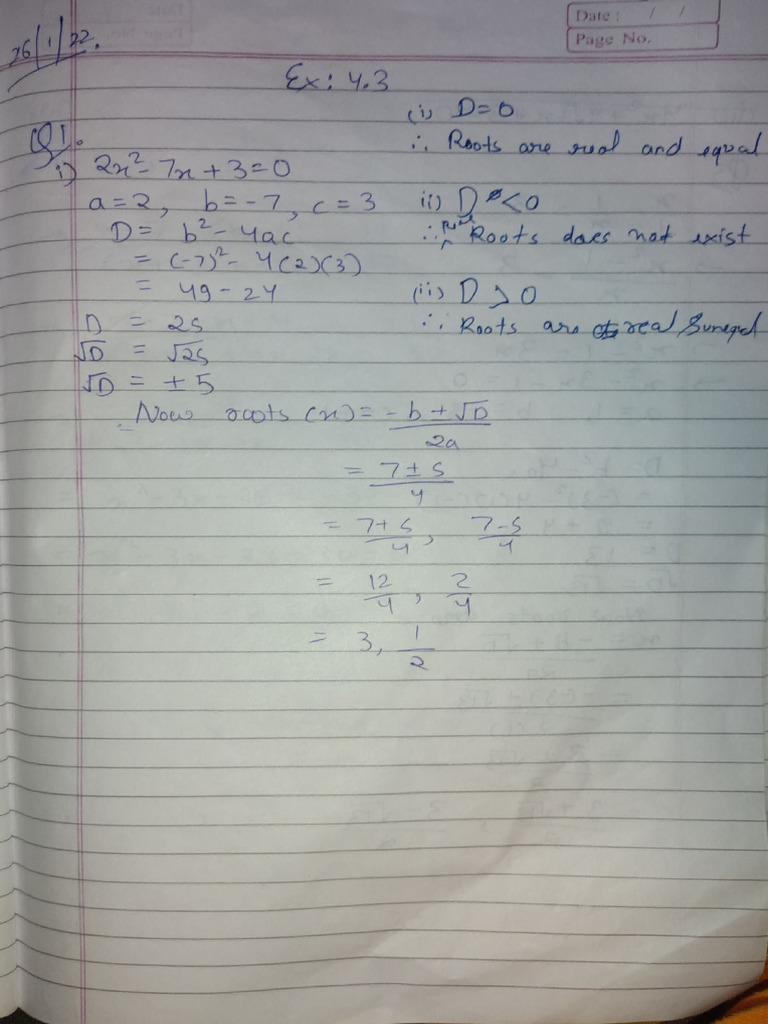 Date : / /
Page No.
26/1/22.
Ex: 4.3
Q1.
i) 2x² - 7x + 3 = 0
a = 2, b = -7, c = 3
D = b² - 4ac
= (-7)² - 4(2)(3)
= 49 - 24
D = 25
√D = √25
√D = ± 5
Now roots (x) = -b + √D / 2a
= 7 ± 5 / 4
= 7 + 5 / 4, 7 - 5 / 4
= 12 / 4, 2 / 4
= 3, 1 / 2
(i) D = 0
∴ Roots are real and equal
ii) D < 0
∴ Real Roots does not exist
(ii) D > 0
∴ Roots are real &